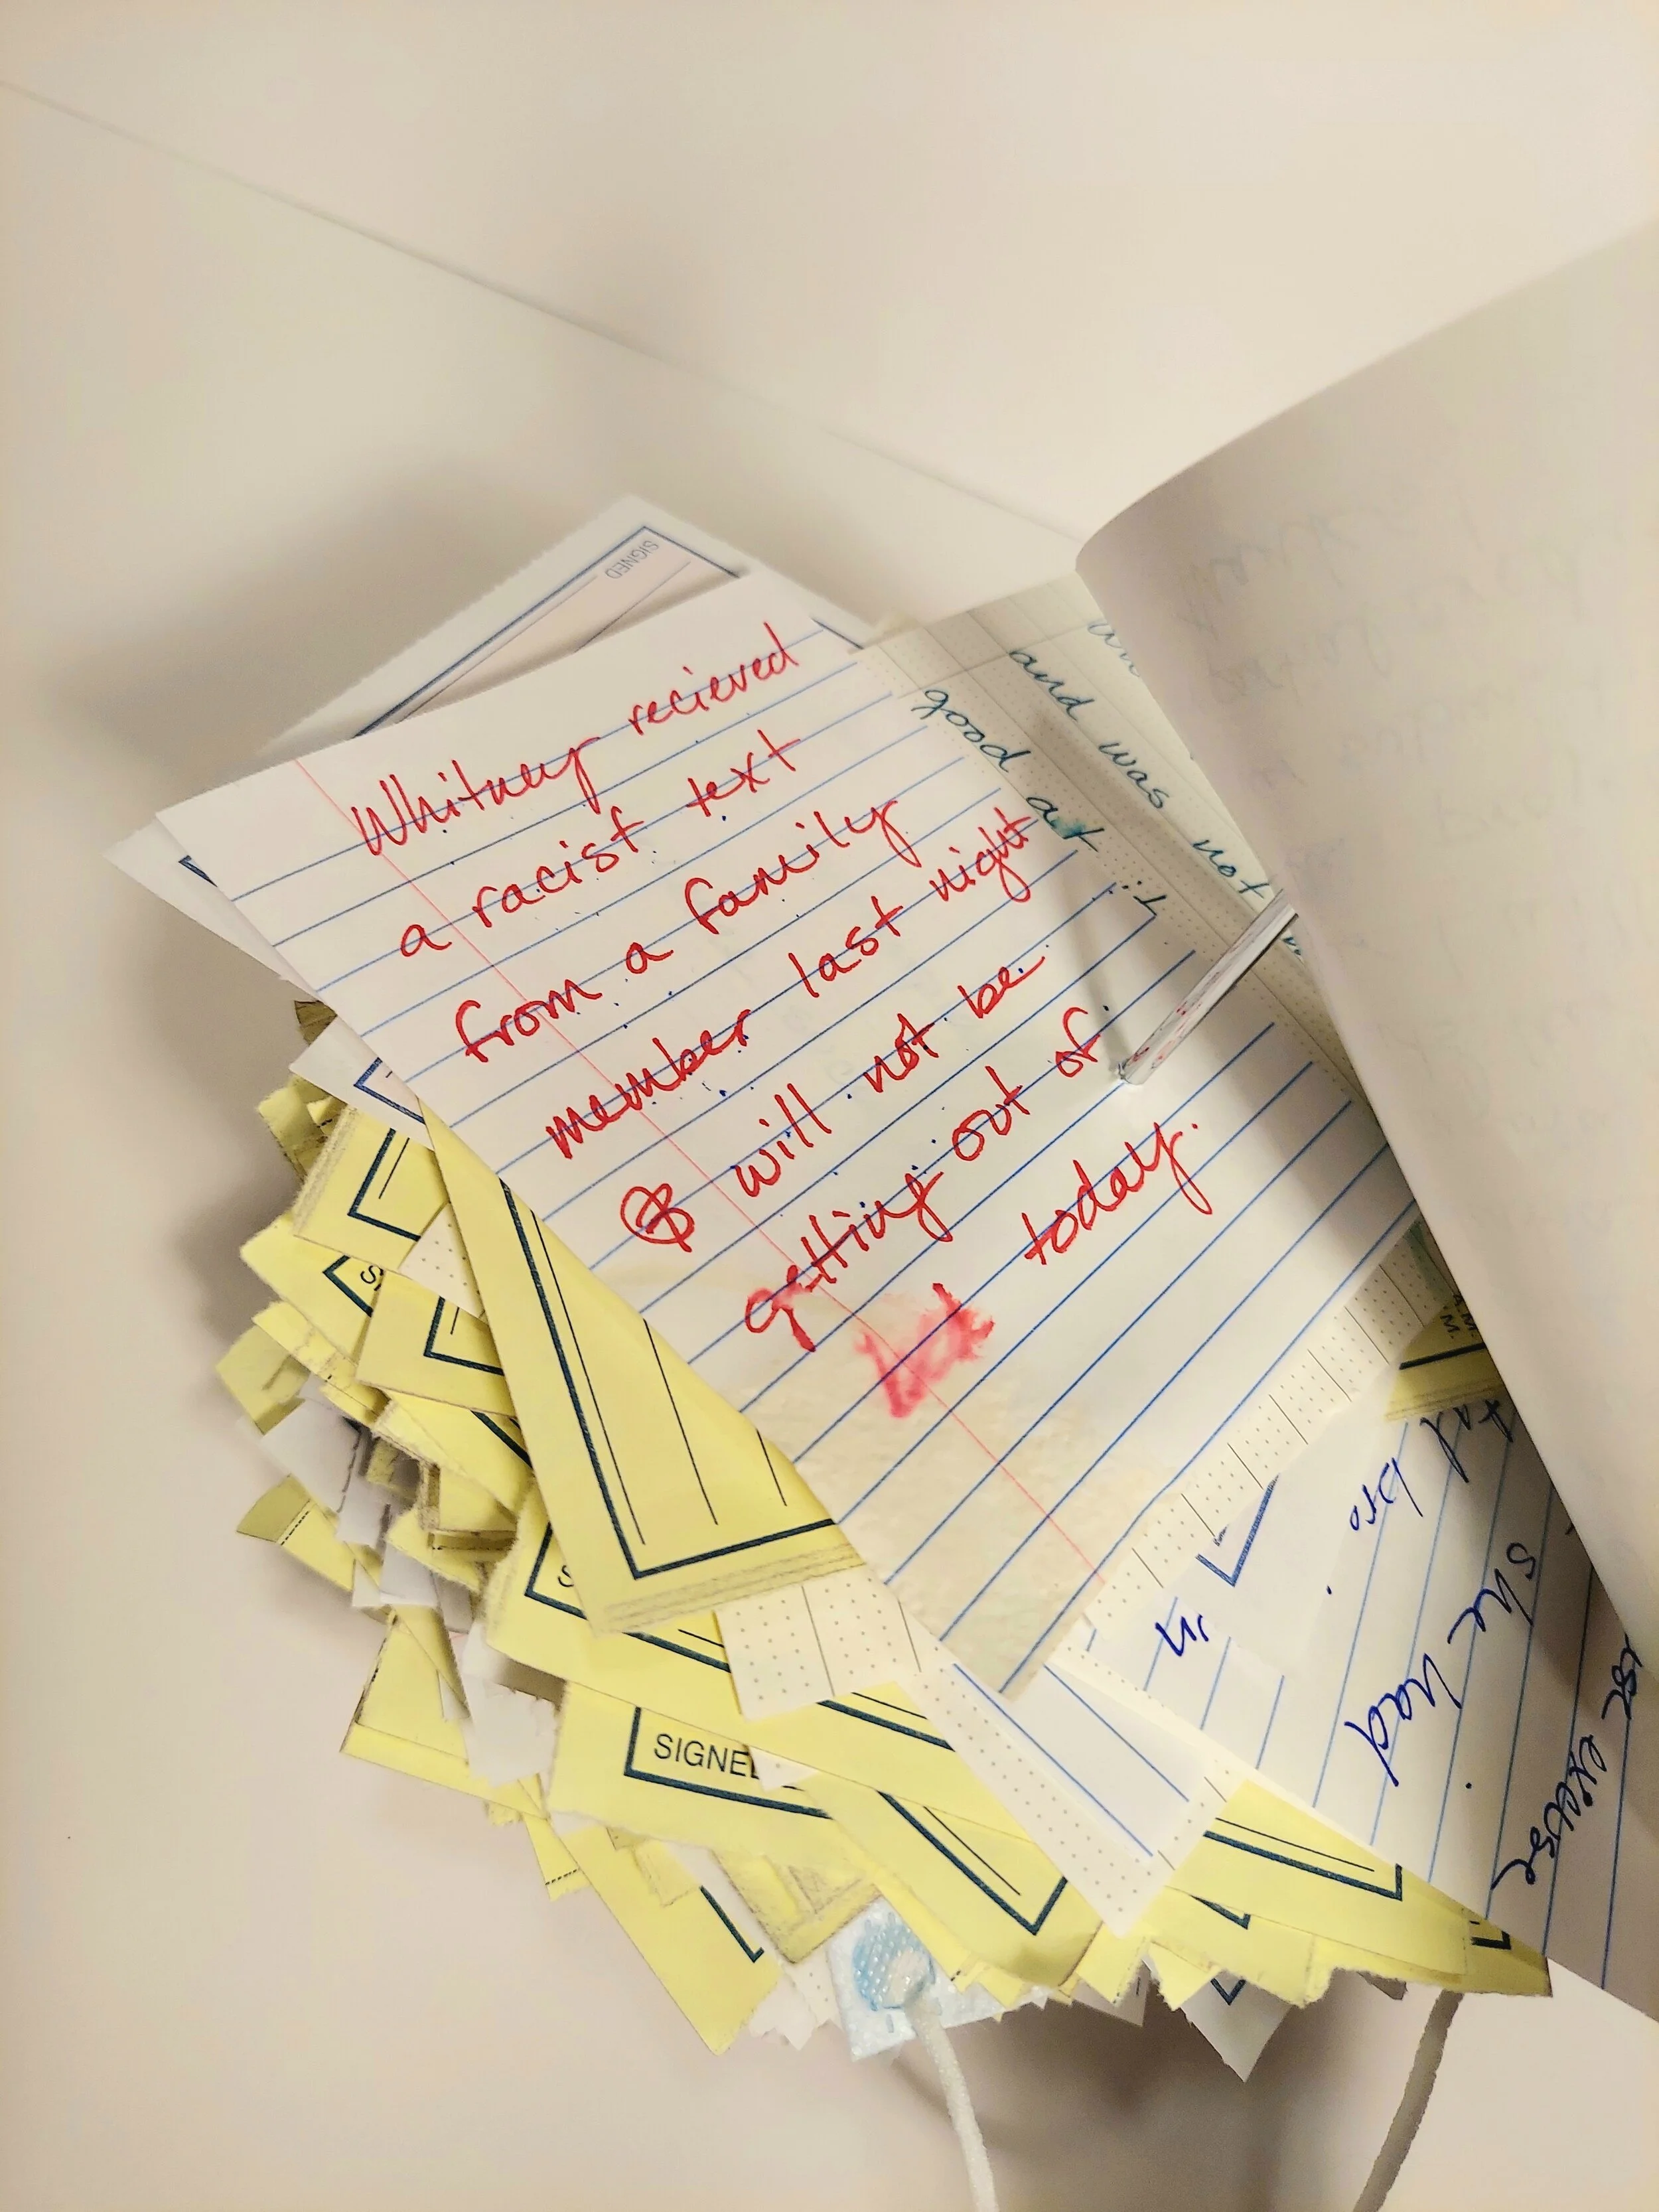 Whitney recieved
a racist text
from a family
member last night
& will not be
getting out of
bed today.
and was not
good at it
SIGNED
SIGNED
bro
in
she had
excuse